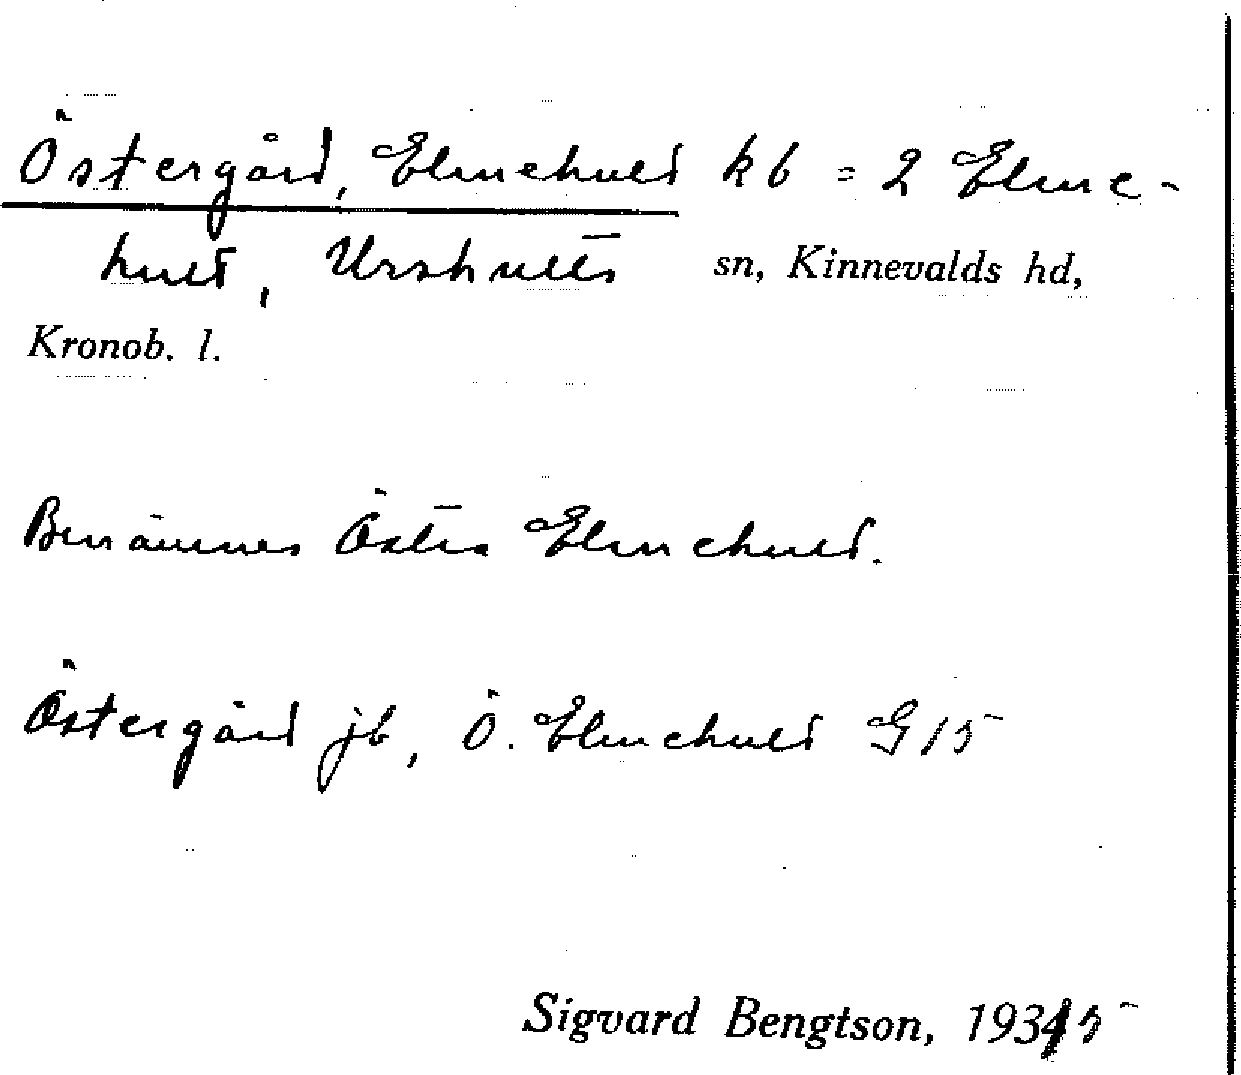 Östergård, Elmehult kb = 2 Elme-
hult, Urshults sn, Kinnevalds hd,
Kronob. l.
Benämnes Östra Elmehult.
Östergård jb, Ö. Elmehult G 15
Sigvard Bengtson, 1935